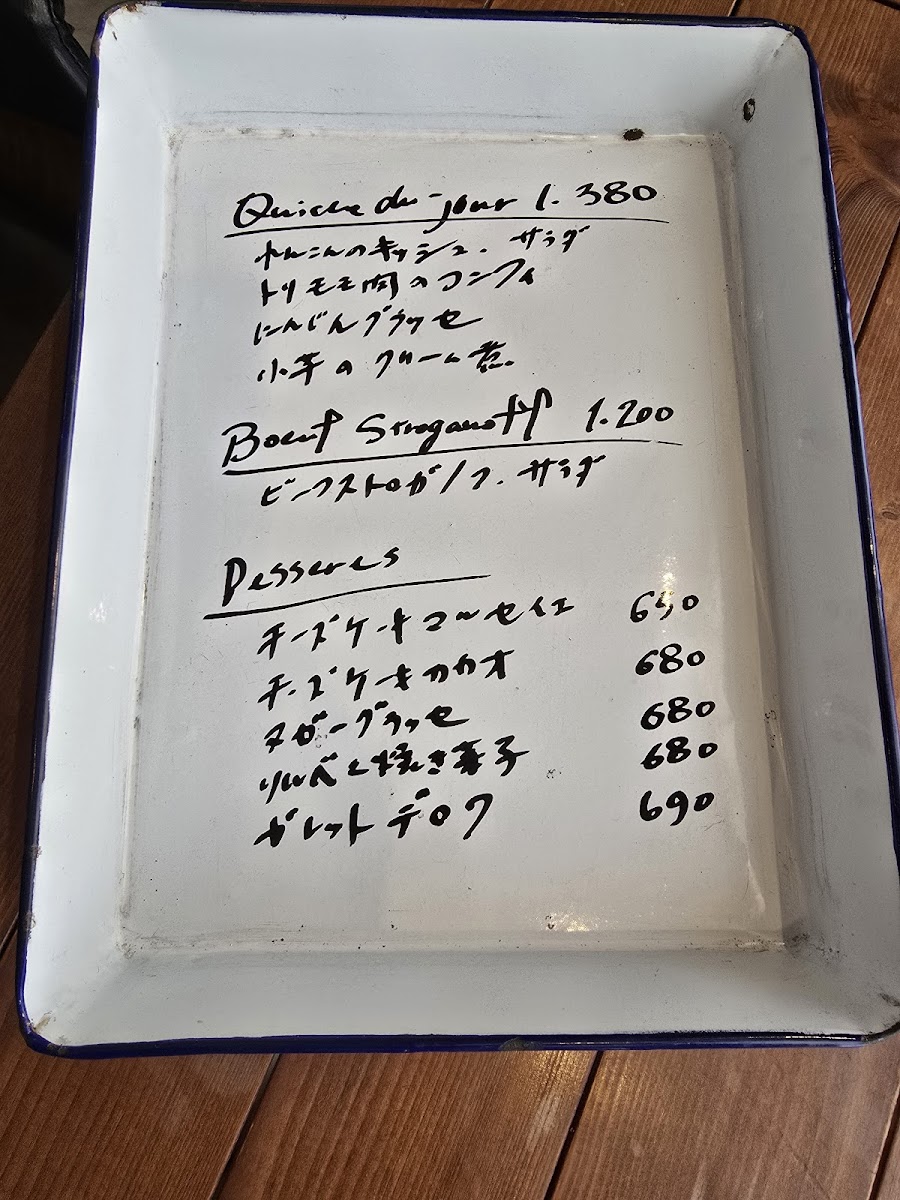 Quiche du jour 1.380
れんこんのキッシュ. サラダ
トリモモ肉のコンフィ
にんじんグラッセ
小芋のクリーム煮
Boeuf Stroganoff 1.200
ビーフストロガノフ. サラダ
Desserts
チーズケーキマルセイエ 650
チーズケーキカカオ 680
ヌガーグラッセ 680
ソルベと焼き菓子 680
ガレットデロワ 690